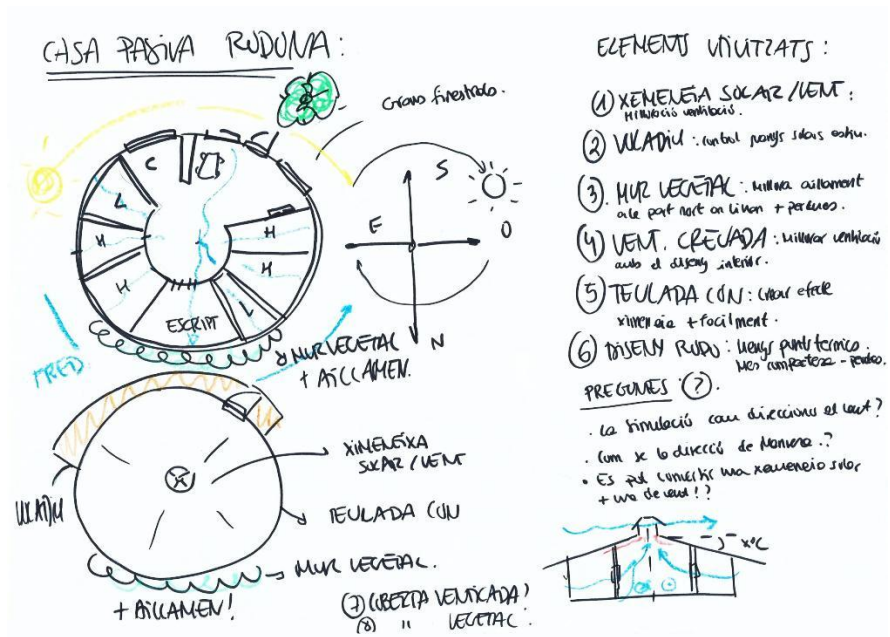 CASA PASIVA RUDONA:
Grans finestrals.
C
L
H
H
H
H
L
ESCRIPT
S
E
O
N
FRED
MUR VEGETAL
+ AÏLLAMEN.
XIMENEIXA
SOLAR / VENT
TEULADA CON
VOLADIU
MUR VEGETAL.
+ AÏLLAMEN!
(7) COBERTA VENTILADA?
(8) " VEGETAL.
ELEMENTS UTILITZATS:
(1) XEMENEIA SOLAR / VENT:
Millulació ventilació.
(2) VOLADIU: control guanys solars
(3). MUR VEGETAL: Millora aillament
a la part nort on hi + perdues.
(4) VENT. CREUADA: Millorar ventilació
amb el diseny interior.
(5) TEULADA CON: Crear efecte
ximeneia + facilment.
(6) DISENY RODO: Menys punts termics.
Mes compactesa - perdues.
PREGUNTES (?).
. La simulació com direcciona el vent?
. Com se la direcció de Manera.?
• Es pot convertir una xemeneia solar
+ una de vent!?
x°C